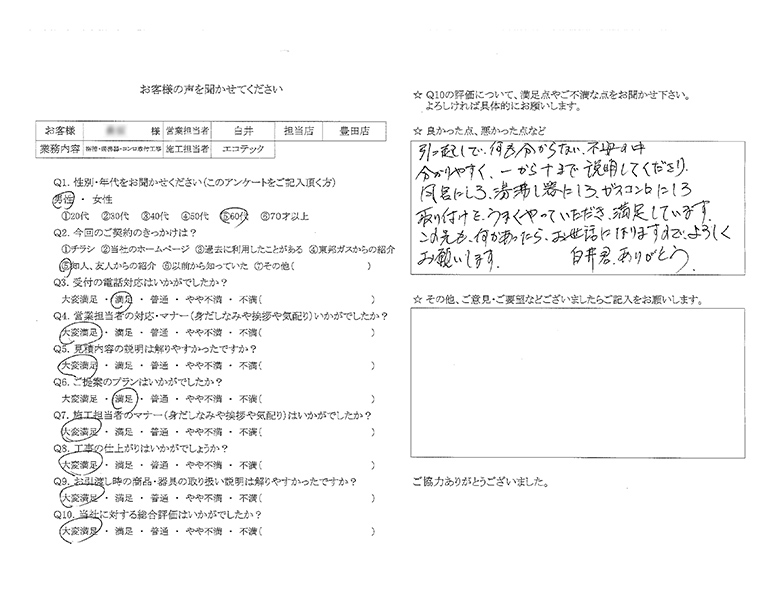 お客様の声を聞かせてください
お客様 様 営業担当者 白井 担当店 豊田店
業務内容 給湯・湯沸器・コンロ取付工事 施工担当者 エコテック
Q1. 性別・年代をお聞かせください(このアンケートをご記入頂く方)
男性 ・ 女性
①20代 ②30代 ③40代 ④50代 ⑤60代 ⑥70才以上
Q2. 今回のご契約のきっかけは？
①チラシ ②当社のホームページ ③過去に利用したことがある ④東邦ガスからの紹介
⑤知人、友人からの紹介 ⑥以前から知っていた ⑦その他( )
Q3. 受付の電話対応はいかがでしたか？
大変満足 ・ 満足 ・ 普通 ・ やや不満 ・ 不満( )
Q4. 営業担当者の対応・マナー(身だしなみや挨拶や気配り)いかがでしたか？
大変満足 ・ 満足 ・ 普通 ・ やや不満 ・ 不満( )
Q5. 見積内容の説明は解りやすかったですか？
大変満足 ・ 満足 ・ 普通 ・ やや不満 ・ 不満( )
Q6. ご提案のプランはいかがでしたか？
大変満足 ・ 満足 ・ 普通 ・ やや不満 ・ 不満( )
Q7. 施工担当者のマナー(身だしなみや挨拶や気配り)はいかがでしたか？
大変満足 ・ 満足 ・ 普通 ・ やや不満 ・ 不満( )
Q8. 工事の仕上がりはいかがでしょうか？
大変満足 ・ 満足 ・ 普通 ・ やや不満 ・ 不満( )
Q9. お引渡し時の商品・器具の取り扱い説明は解りやすかったですか？
大変満足 ・ 満足 ・ 普通 ・ やや不満 ・ 不満( )
Q10. 当社に対する総合評価はいかがでしたか？
大変満足 ・ 満足 ・ 普通 ・ やや不満 ・ 不満( )
☆ Q10の評価について、満足点やご不満な点をお聞かせ下さい。
よろしければ具体的にお願いします。
☆ 良かった点、悪かった点など
引っ越して、何も分からない、不安の中
分かりやすく、一から十まで説明してくださり、
風呂にしろ、湯沸し器にしろ、ガスコンロにしろ
取り付けも、うまくやっていただき、満足しています。
この先も、何かあったら、お世話になりますので、よろしく
お願いします。 白井君、ありがとう。
☆ その他、ご意見・ご要望などございましたらご記入をお願いします。
ご協力ありがとうございました。